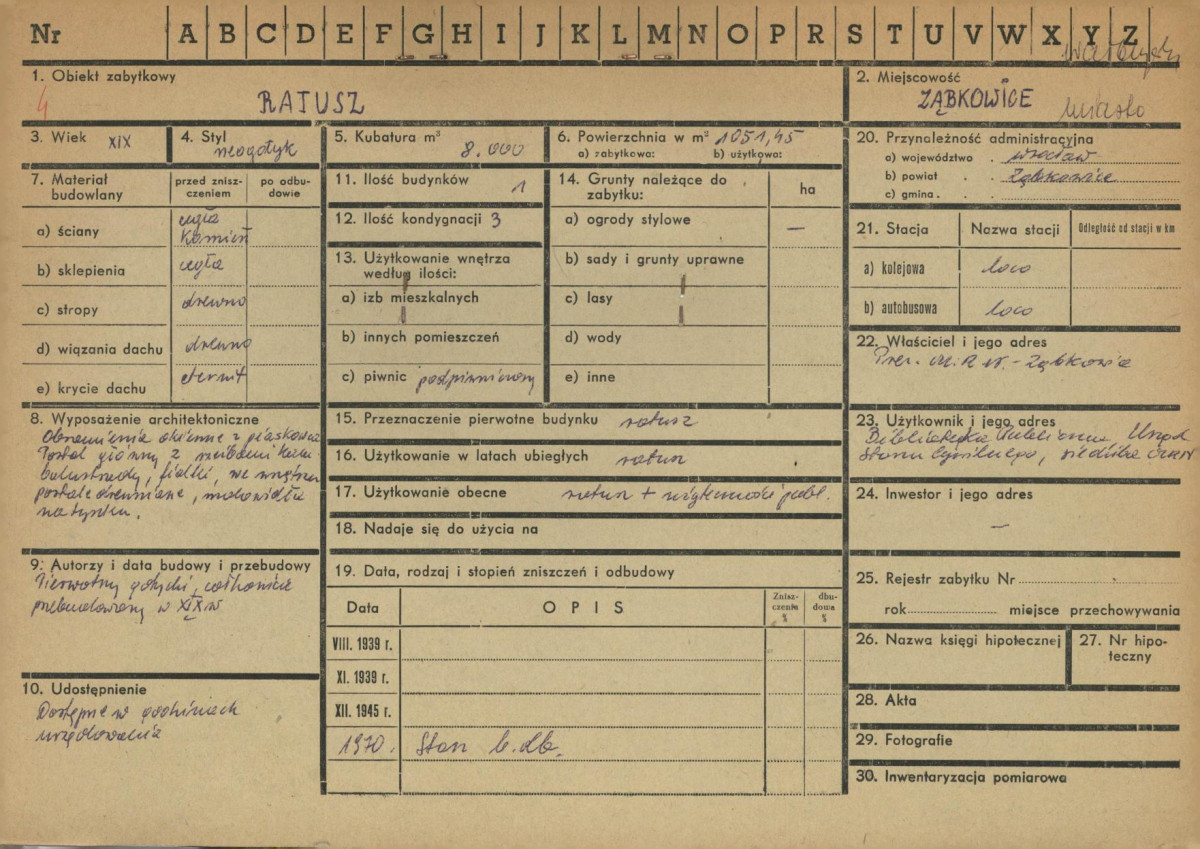 Nr A B C D E F G H I J K L M N O P R S T U V W X Y Z
1. Obiekt zabytkowy
4
RATUSZ
2. Miejscowość
ZĄBKOWICE
miasto
3. Wiek XIX
4. Styl
neogotyk
5. Kubatura m³
8.000
6. Powierzchnia w m² 1051,45
a) zabytkowa: b) użytkowa:
7. Materiał
budowlany
przed znisz-
czeniem
po odbu-
dowie
a) ściany cegła
kamień
b) sklepienia cegła
c) stropy drewno
d) wiązania dachu drewno
e) krycie dachu eternit
8. Wyposażenie architektoniczne
Obramienia okienne z piaskowca
Portal główny z
balustrady, fialki, we wnętrzu
portale drewniane, malowidła
na tynku.
9. Autorzy i data budowy i przebudowy
Pierwotny gotycki, całkowicie
przebudowany w XIX w
10. Udostępnienie
Dostępne w godzinach
urzędowania
11. Ilość budynków 1
12. Ilość kondygnacji 3
13. Użytkowanie wnętrza
według ilości:
a) izb mieszkalnych
b) innych pomieszczeń
c) piwnic podpiwniczony
14. Grunty należące do
zabytku:
ha
a) ogrody stylowe —
b) sady i grunty uprawne
c) lasy
d) wody
e) inne
15. Przeznaczenie pierwotne budynku ratusz
16. Użytkowanie w latach ubiegłych ratusz
17. Użytkowanie obecne ratusz + użyteczności publ.
18. Nadaje się do użycia na
19. Data, rodzaj i stopień zniszczeń i odbudowy
Data OPIS Znisz-
czenia
%
dbu-
dowa
%
VIII. 1939 r.
XI. 1939 r.
XII. 1945 r.
1970. Stan b. db.
20. Przynależność administracyjna
a) województwo . wrocław
b) powiat . . Ząbkowice
c) gmina . . .
21. Stacja Nazwa stacji Odległość od stacji w km
a) kolejowa loco
b) autobusowa loco
22. Właściciel i jego adres
Prez. M.R.N. - Ząbkowice
23. Użytkownik i jego adres
Biblioteka Publiczna, Urząd
Stanu Cywilnego, siedziba
24. Inwestor i jego adres
—
25. Rejestr zabytku Nr
rok miejsce przechowywania
26. Nazwa księgi hipotecznej
27. Nr hipo-
teczny
28. Akta
29. Fotografie
30. Inwentaryzacja pomiarowa